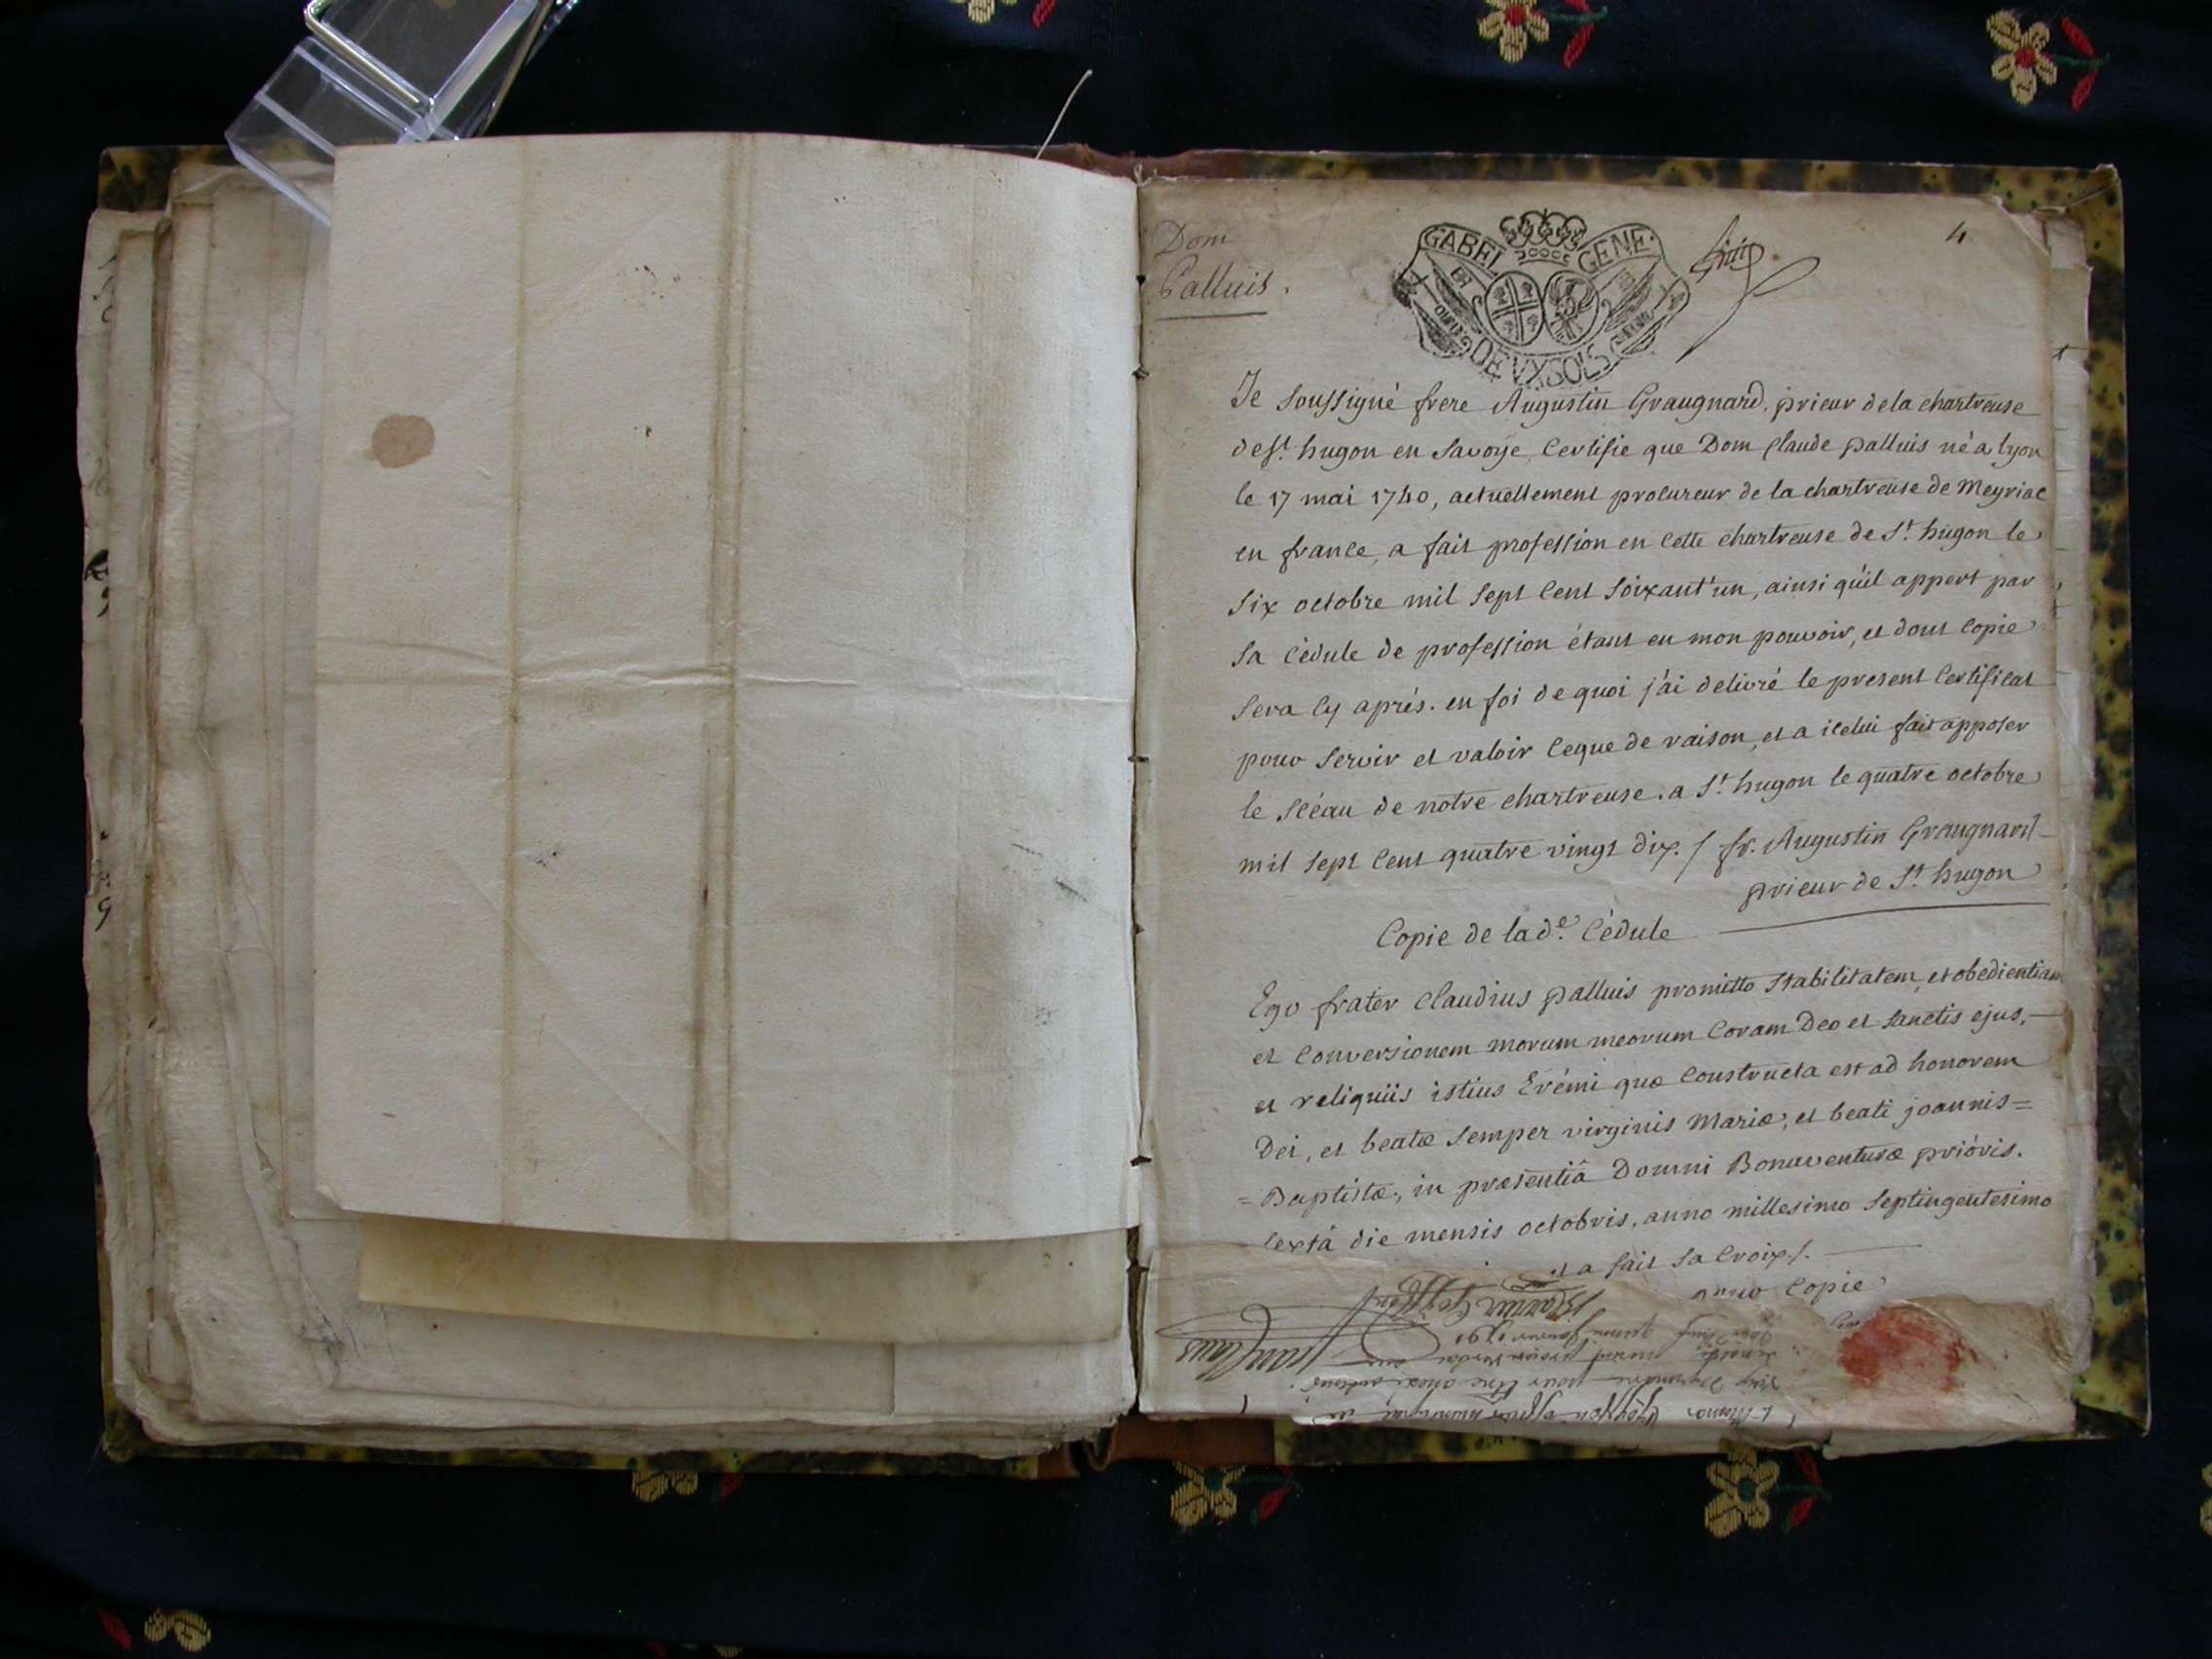 Dom
Palluis.
GABEL GENE.
DEVX SOLS
4
Je soussigné frere Augustin Graugnard, prieur de la chartreuse
de St. hugon en Savoye, Certifie que Dom Claude palluis né a lyon
le 17 mai 1740, actuellement procureur de la chartreuse de Meyriac
en france, a fait profession en Cette chartreuse de St. hugon le
six octobre mil sept Cent Soixant'un, ainsi qu'il appert par
sa Cédule de profession étant en mon pouvoir, et dont Copie
sera Cy aprés. en foi de quoi j'ai delivré le present Certificat
pour servir et valoir Ceque de raison, et a icelui fait apposer
le scéau de notre chartreuse. a St. hugon le quatre octobre
mil sept Cent quatre vingt dix. / fr. Augustin Graugnard
prieur de St. hugon
Copie de lade. Cédule
Ego frater Claudius palluis promitto stabilitatem, et obedientiam
et Conversionem morum meorum Coram Deo et sanctis ejus,
et reliquiis istius Erémi quæ Constructa est ad honorem
Dei, et beatæ semper virginis Mariæ, et beati joannis=
=Baptistæ, in præsentiâ Domni Bonaventuræ prióris.
sextâ die mensis octobris, anno millesimo septingentesimo
et a fait sa Croix./.
pour Copie